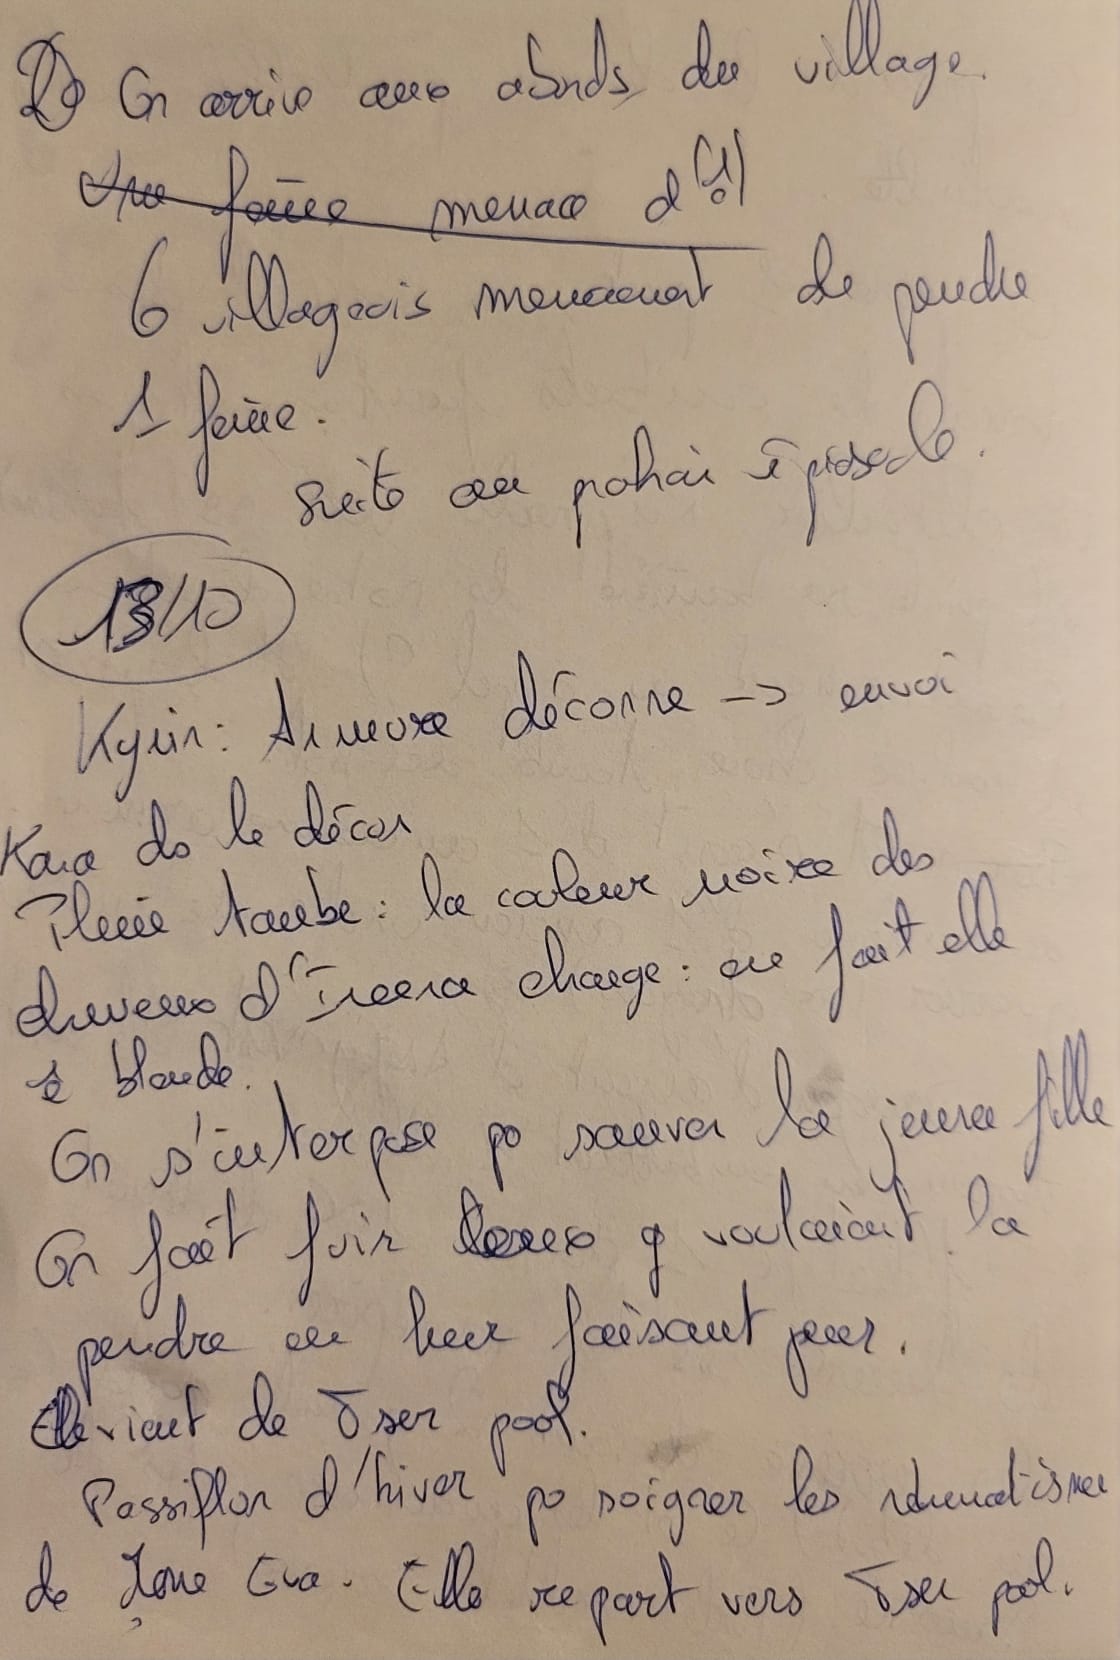 2) On arrive aux abords du village.
~~Une faërie menace d'(1)~~
6 villageois menacent de pendre
1 faërie.
Suite au prochain épisode.
13/10
Kyrin: Armure déconne -> envoi
Kara ds le décor
Pluie tombe: la couleur noire des
cheveux d' change: en fait elle
è blonde.
On s'interpose po sauver la jeune fille
On fait fuir ceux q voulaient la
pendre en leur faisant peur.
Elle vient de Oser pool.
Passiflor d'hiver po soigner les rhumatismes
de Eva. Elle repart vers Oser pool.